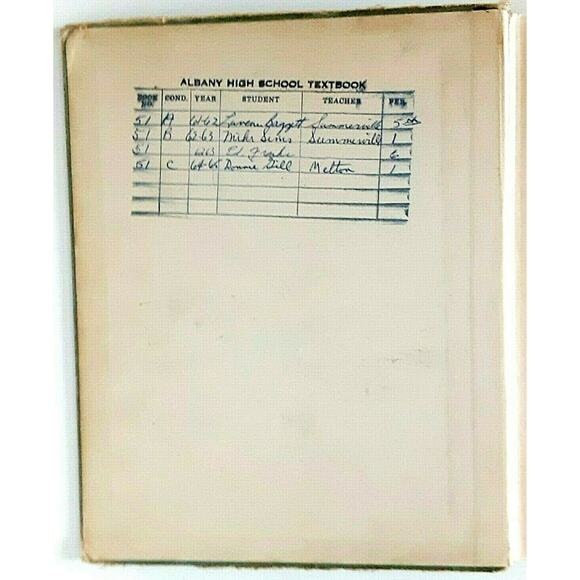 ALBANY HIGH SCHOOL TEXTBOOK
BOOK NO. COND. YEAR STUDENT TEACHER PER.
51 A 61-62 Baggett Summerville 5th
51 B 62-63 Mike Sims Summerville 1
51 Ed 6
51 C 64-65 Donnie Gill Melton 1